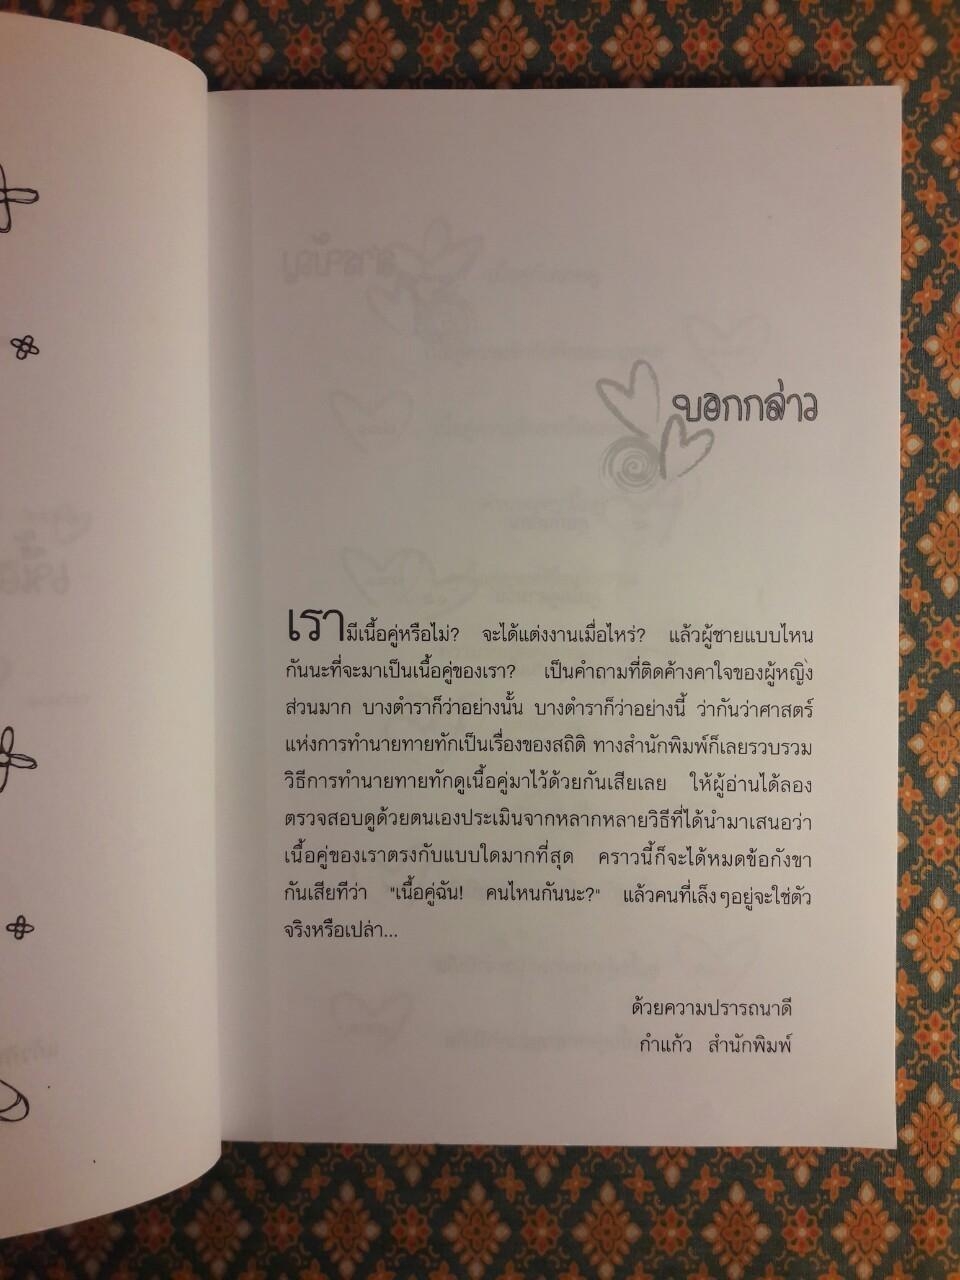 บอกกล่าว
เรามีเนื้อคู่หรือไม่? จะได้แต่งงานเมื่อไหร่? แล้วผู้ชายแบบไหน
กันนะที่จะมาเป็นเนื้อคู่ของเรา? เป็นคำถามที่ติดค้างคาใจของผู้หญิง
ส่วนมาก บางตำราก็ว่าอย่างนั้น บางตำราก็ว่าอย่างนี้ ว่ากันว่าศาสตร์
แห่งการทำนายทายทักเป็นเรื่องของสถิติ ทางสำนักพิมพ์ก็เลยรวบรวม
วิธีการทำนายทายทักดูเนื้อคู่มาไว้ด้วยกันเสียเลย ให้ผู้อ่านได้ลอง
ตรวจสอบดูด้วยตนเองประเมินจากหลากหลายวิธีที่ได้นำมาเสนอว่า
เนื้อคู่ของเราตรงกับแบบใดมากที่สุด คราวนี้ก็จะได้หมดข้อกังขา
กันเสียทีว่า "เนื้อคู่ฉัน! คนไหนกันนะ?" แล้วคนที่เล็งๆอยู่จะใช่ตัว
จริงหรือเปล่า...
ด้วยความปรารถนาดี
กำแก้ว สำนักพิมพ์